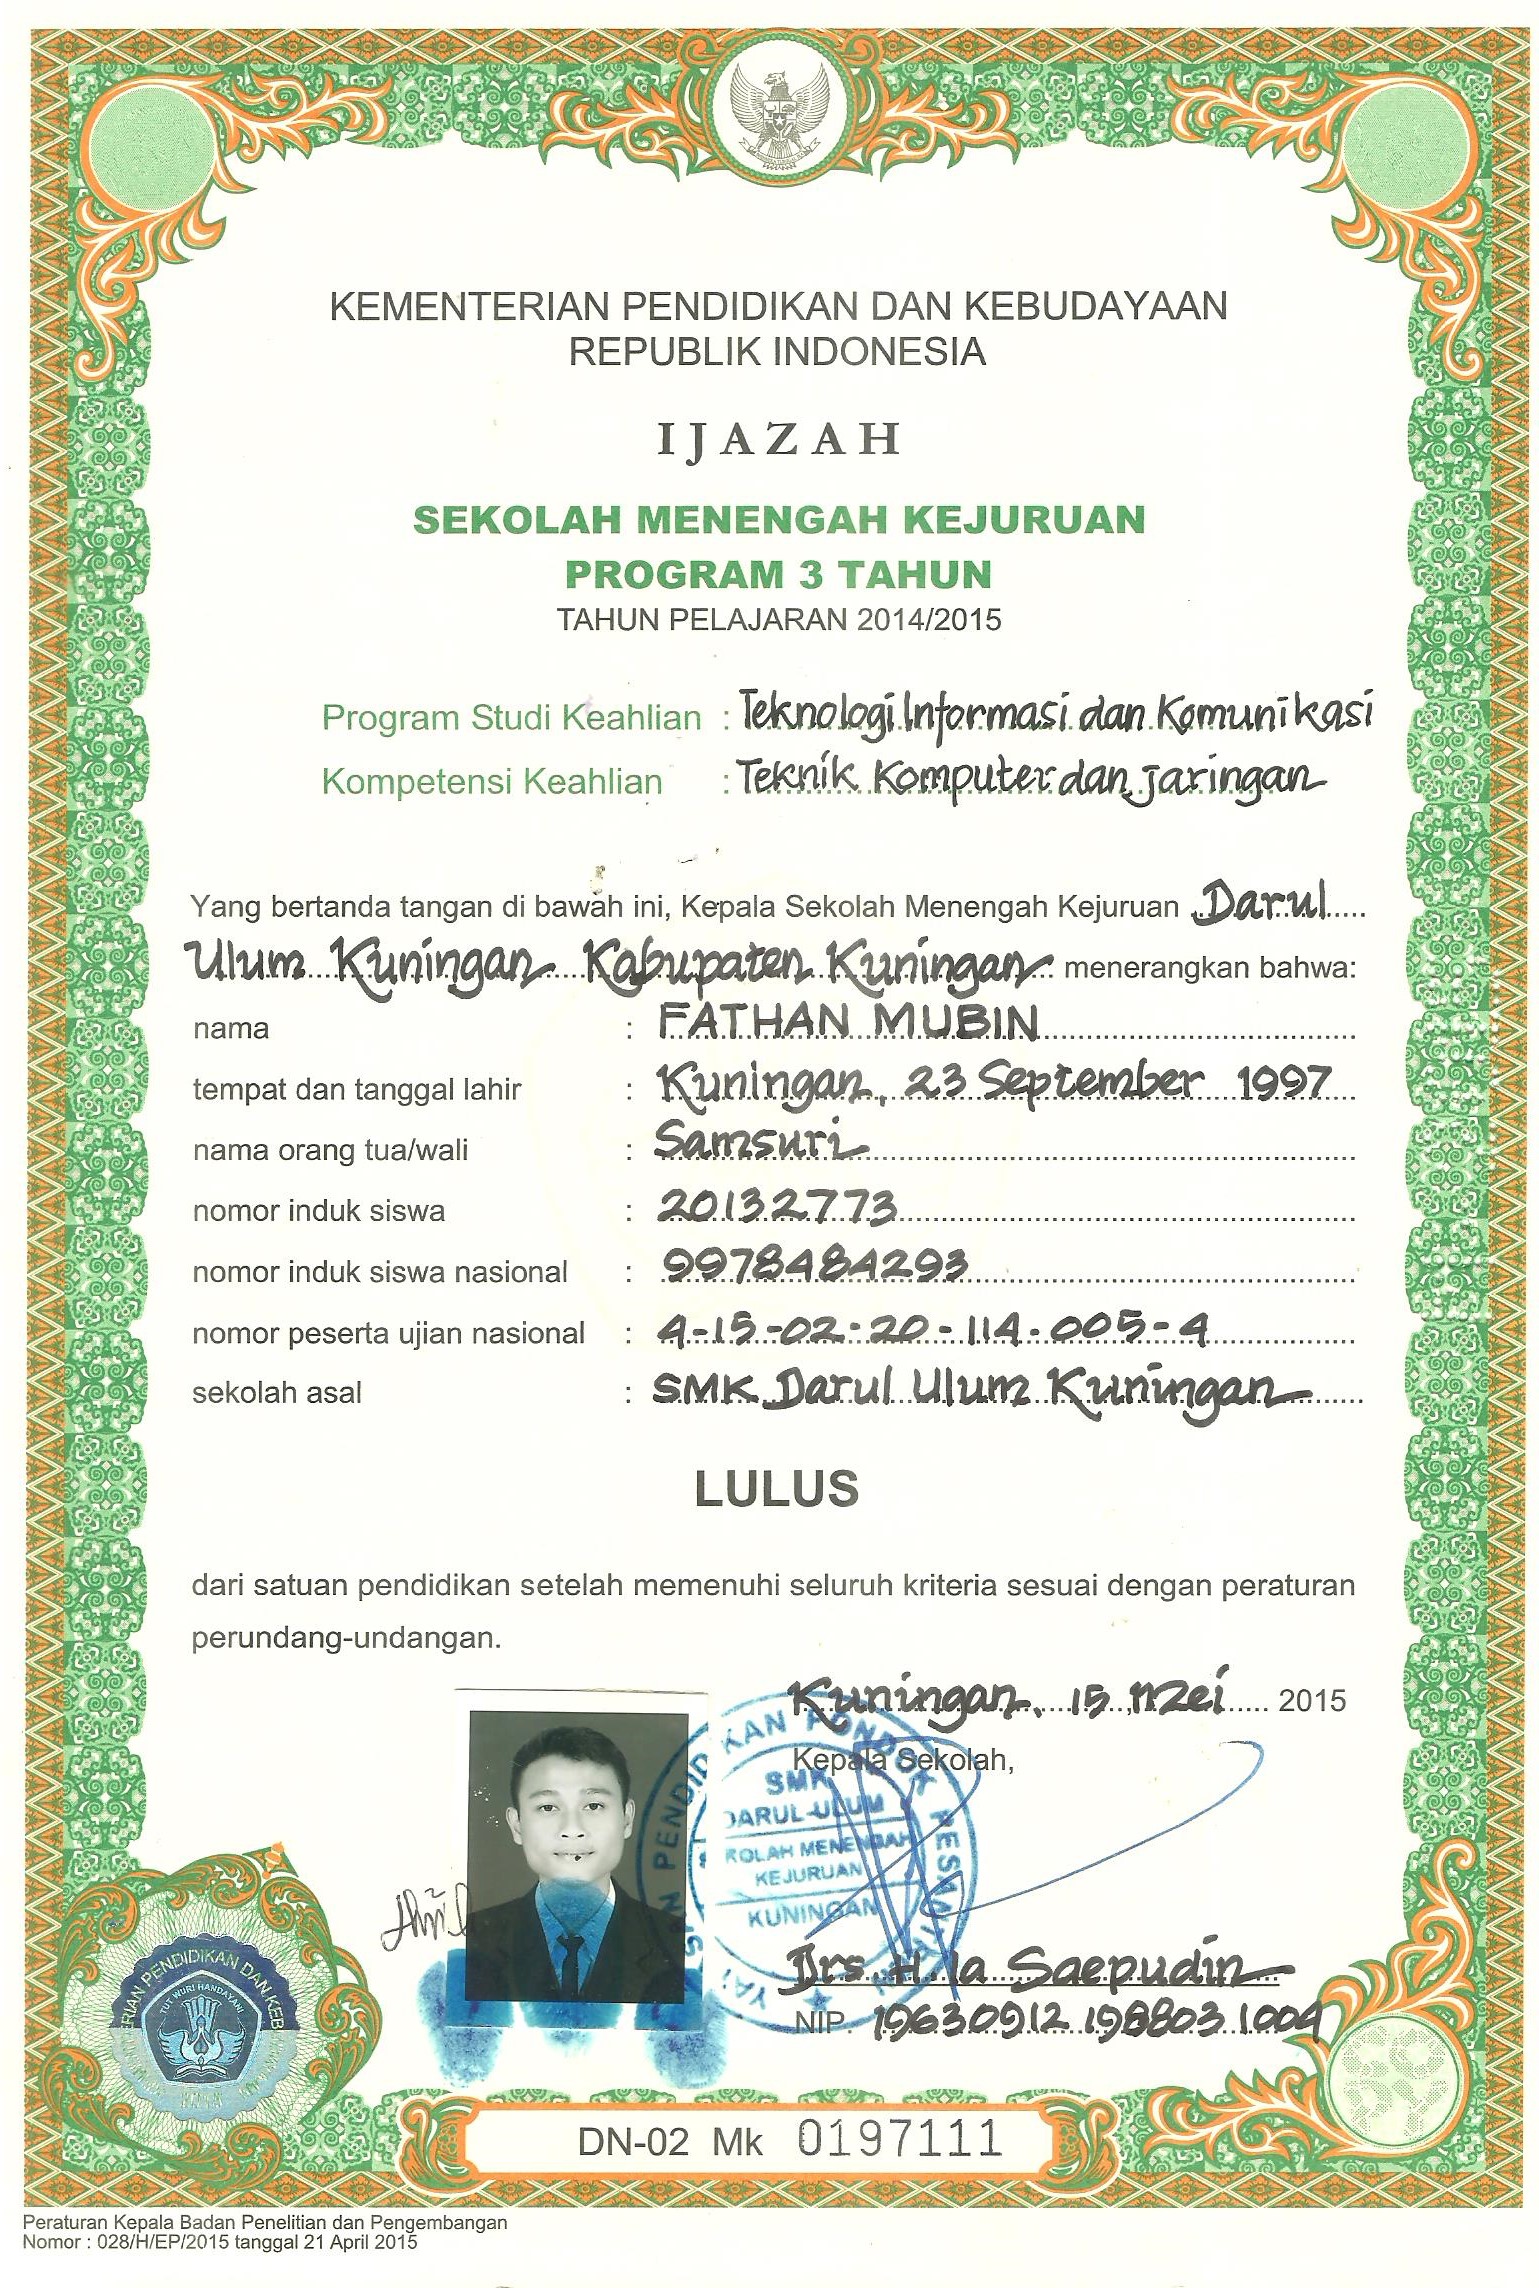 KEMENTERIAN PENDIDIKAN DAN KEBUDAYAAN
REPUBLIK INDONESIA
IJAZAH
SEKOLAH MENENGAH KEJURUAN
PROGRAM 3 TAHUN
TAHUN PELAJARAN 2014/2015
Program Studi Keahlian : Teknologi Informasi dan Komunikasi
Kompetensi Keahlian : Teknik Komputer dan Jaringan
Yang bertanda tangan di bawah ini, Kepala Sekolah Menengah Kejuruan Darul
Ulum Kuningan Kabupaten Kuningan menerangkan bahwa:
nama : FATHAN MUBIN
tempat dan tanggal lahir : Kuningan, 23 September 1997
nama orang tua/wali : Samsuri
nomor induk siswa : 20132773
nomor induk siswa nasional : 9978484293
nomor peserta ujian nasional : 4-15-02-20-114-005-4
sekolah asal : SMK Darul Ulum Kuningan
LULUS
dari satuan pendidikan setelah memenuhi seluruh kriteria sesuai dengan peraturan
perundang-undangan.
Kuningan, 15 Mei 2015
Kepala Sekolah,
SMK
DARUL-ULUM
KEJURUAN
KUNINGAN
Drs. H. Ia Saepudin
NIP. 19630912 198803 1 004
TUT WURI HANDAYANI
DN-02 Mk 0197111
Peraturan Kepala Badan Penelitian dan Pengembangan
Nomor : 028/H/EP/2015 tanggal 21 April 2015